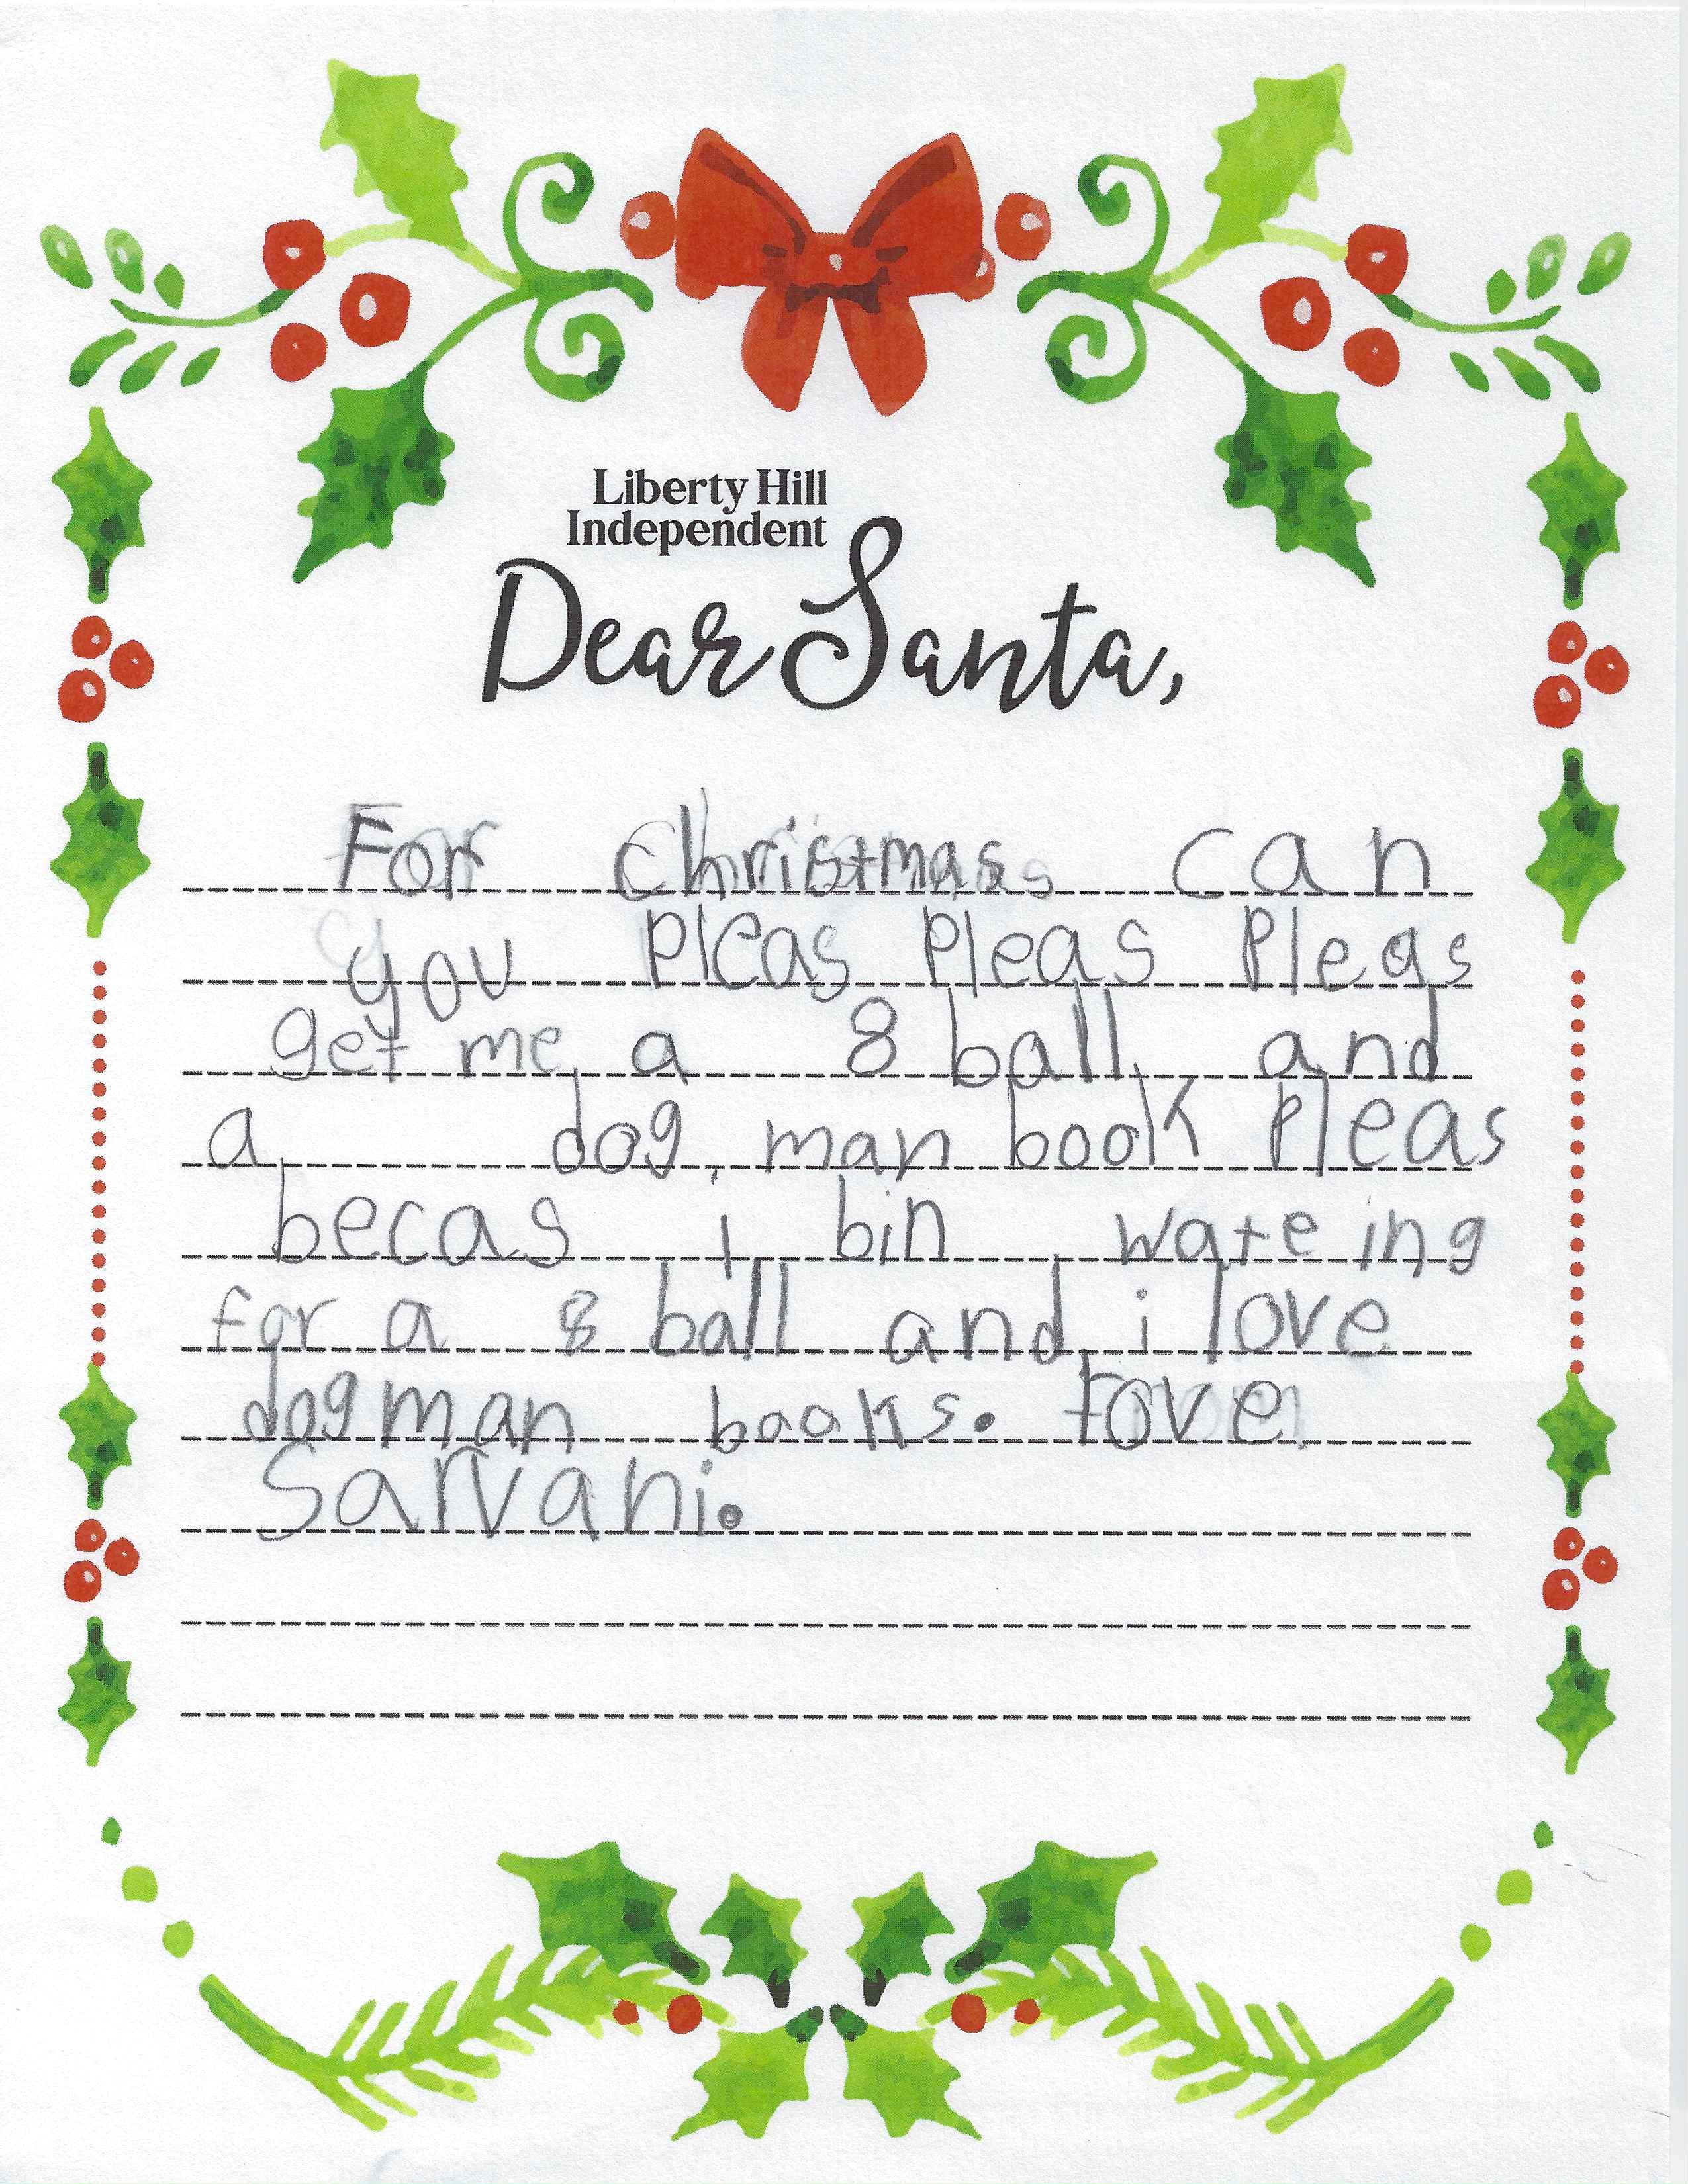 Liberty Hill
Independent
Dear Santa,
For christmas can
you pleas pleas pleas
get me a 8 ball and
a dog man book pleas
becas i bin wateing
for a 8 ball and i love
dog man books. Love
Sarvani.